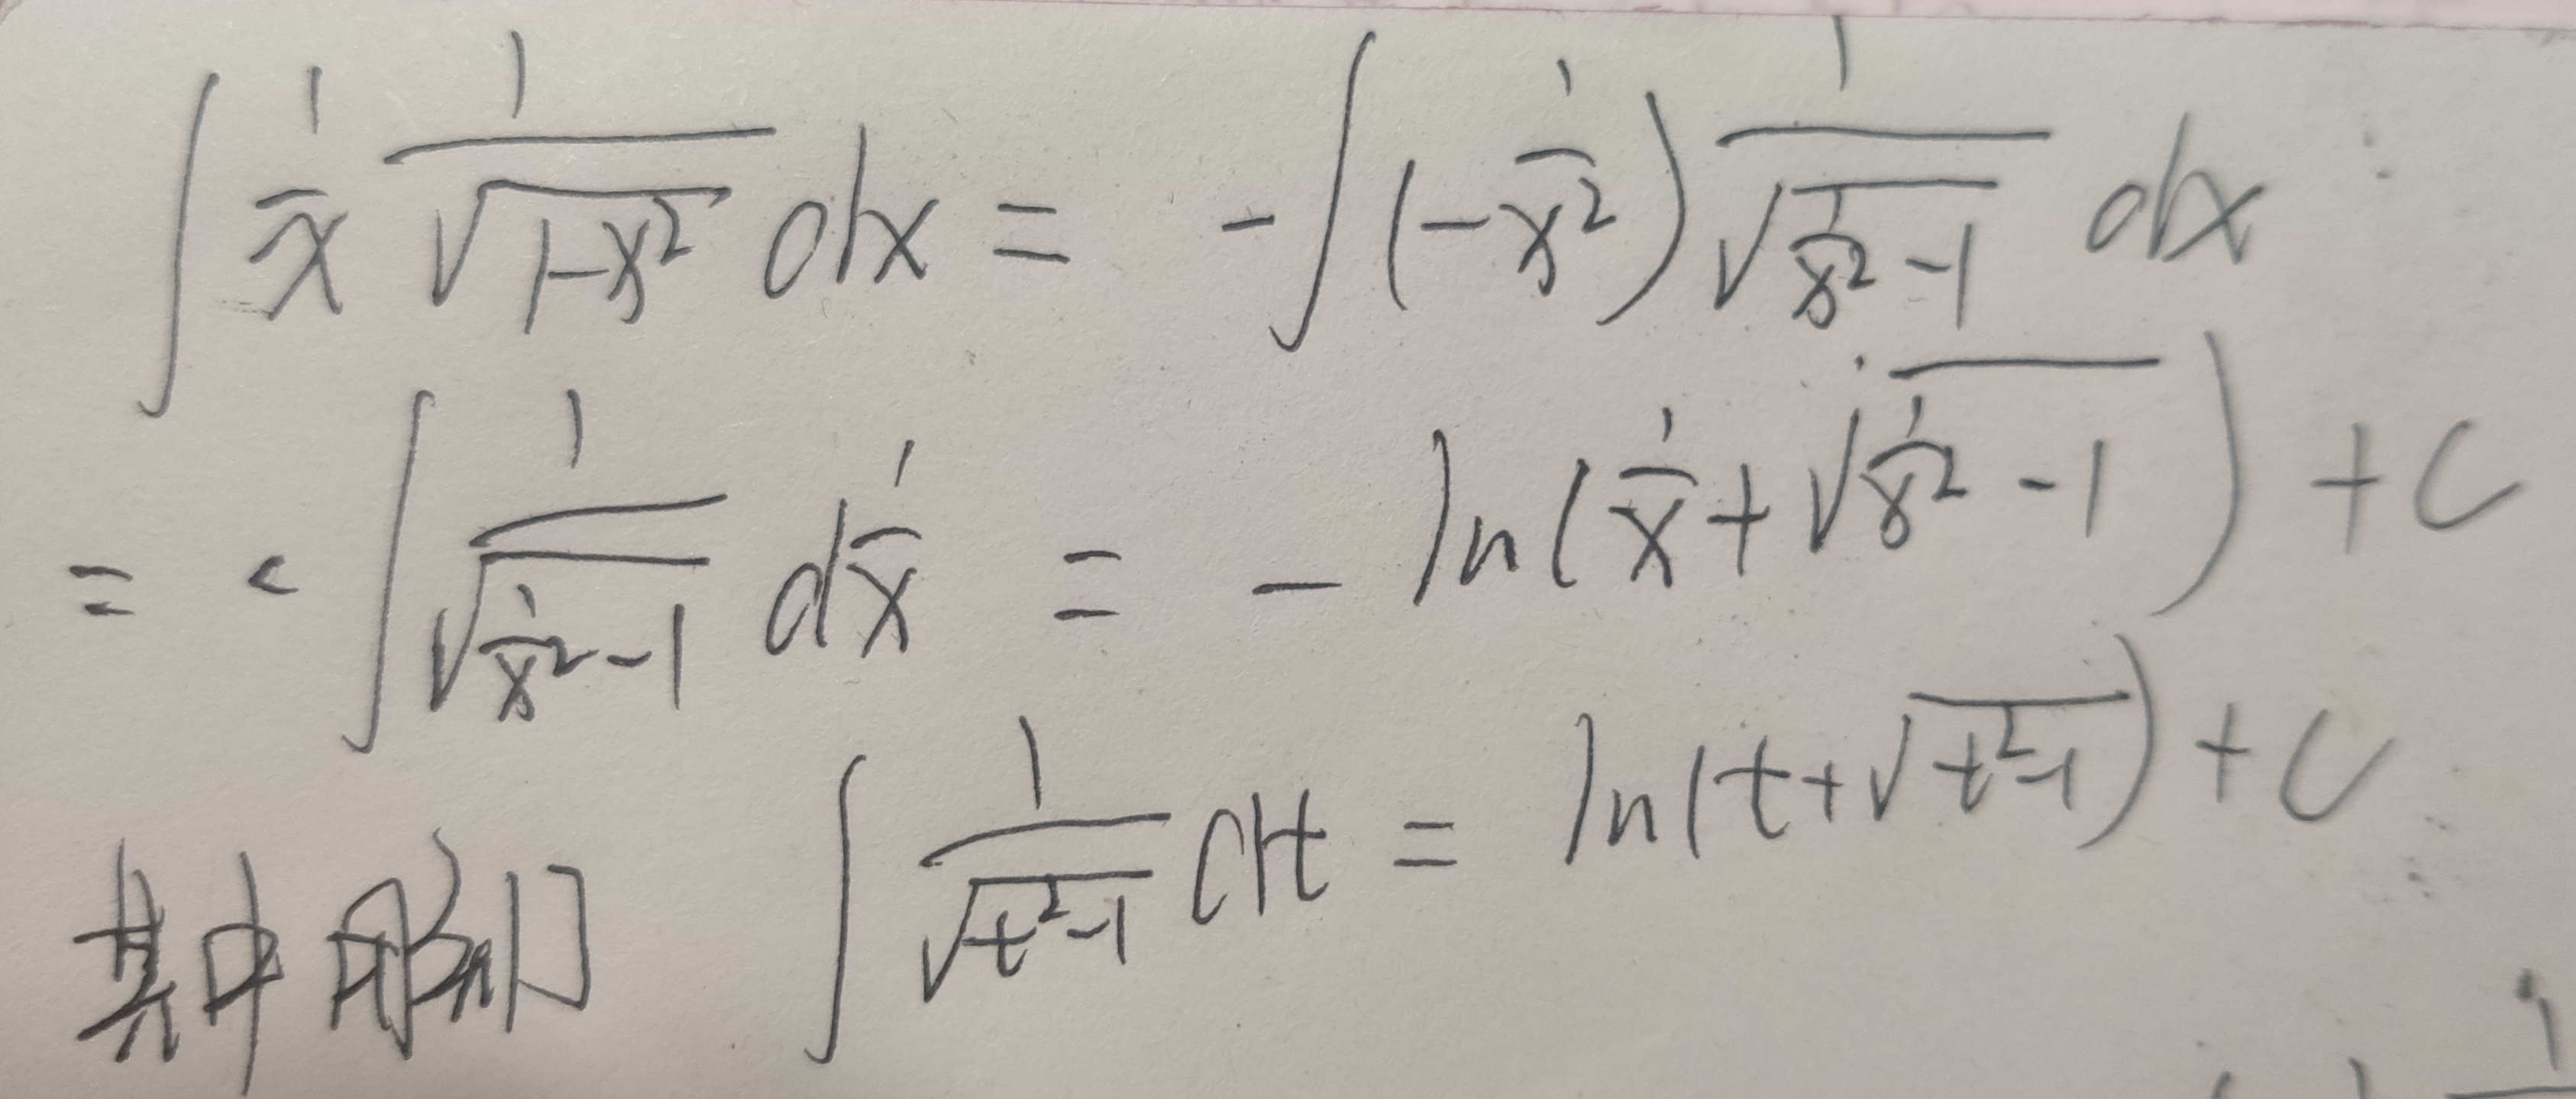 ∫ 1/x 1/√(1-x²) dx = -∫ (-1/x²) 1/√(1/x² -1) dx
= - ∫ 1/√(1/x² -1) d 1/x = - ln(1/x + √(1/x² -1)) + C
其中用到 ∫ 1/√(t²-1) dt = ln(t+√(t²-1)) + C